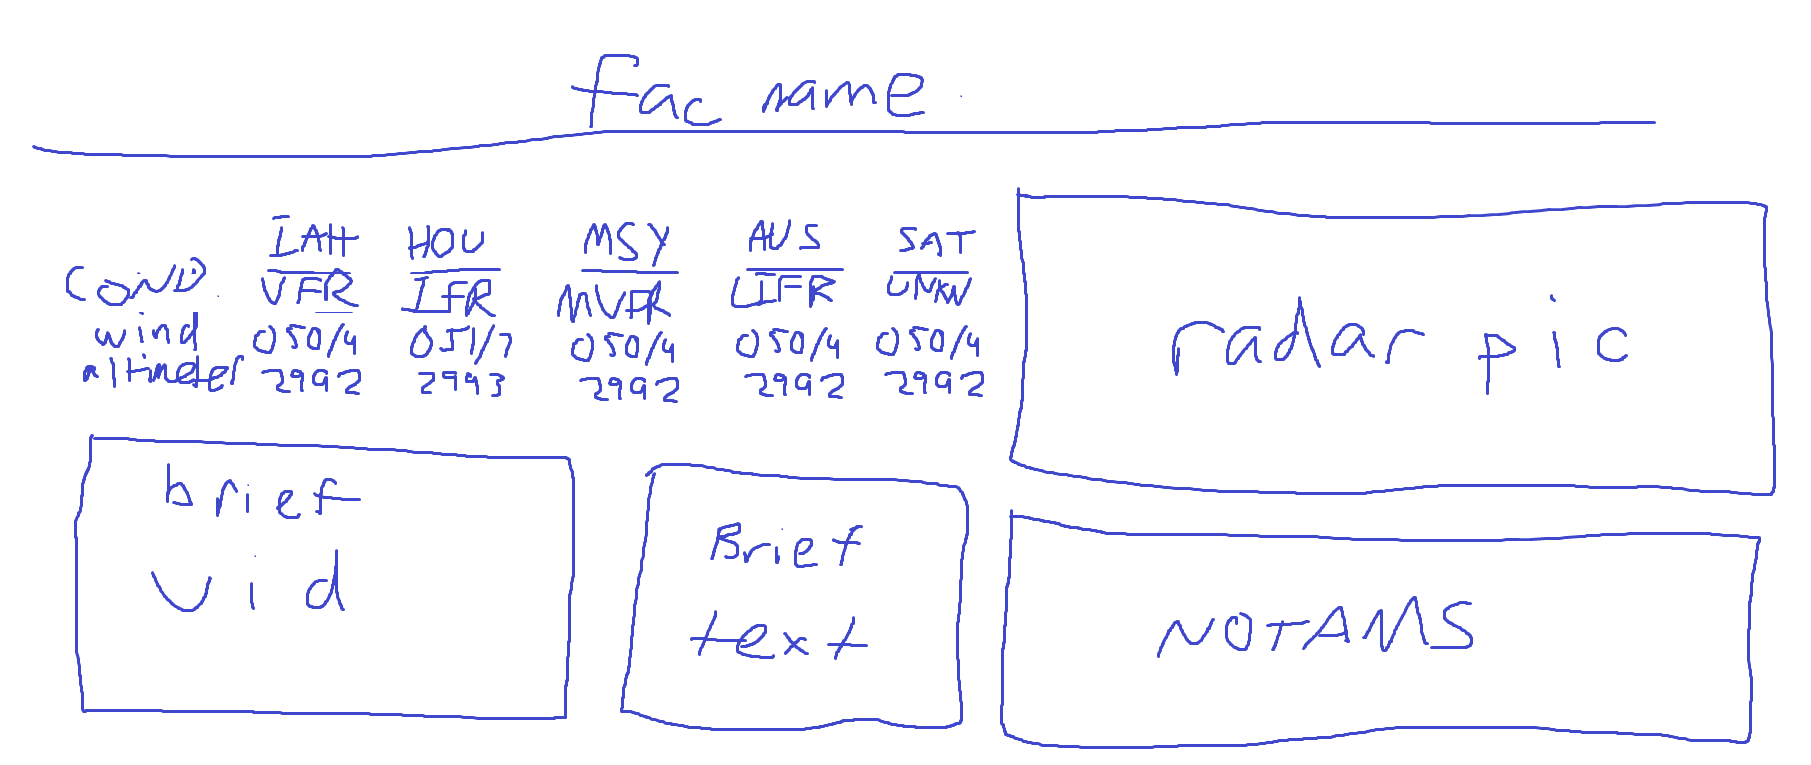 fac name
IAH HOU MSY AUS SAT
COND. VFR IFR MVFR LIFR UNKN
wind 050/4 051/7 050/4 050/4 050/4
altimeter 2992 2993 2992 2992 2992
radar pic
brief
vid
Brief
text
NOTAMS